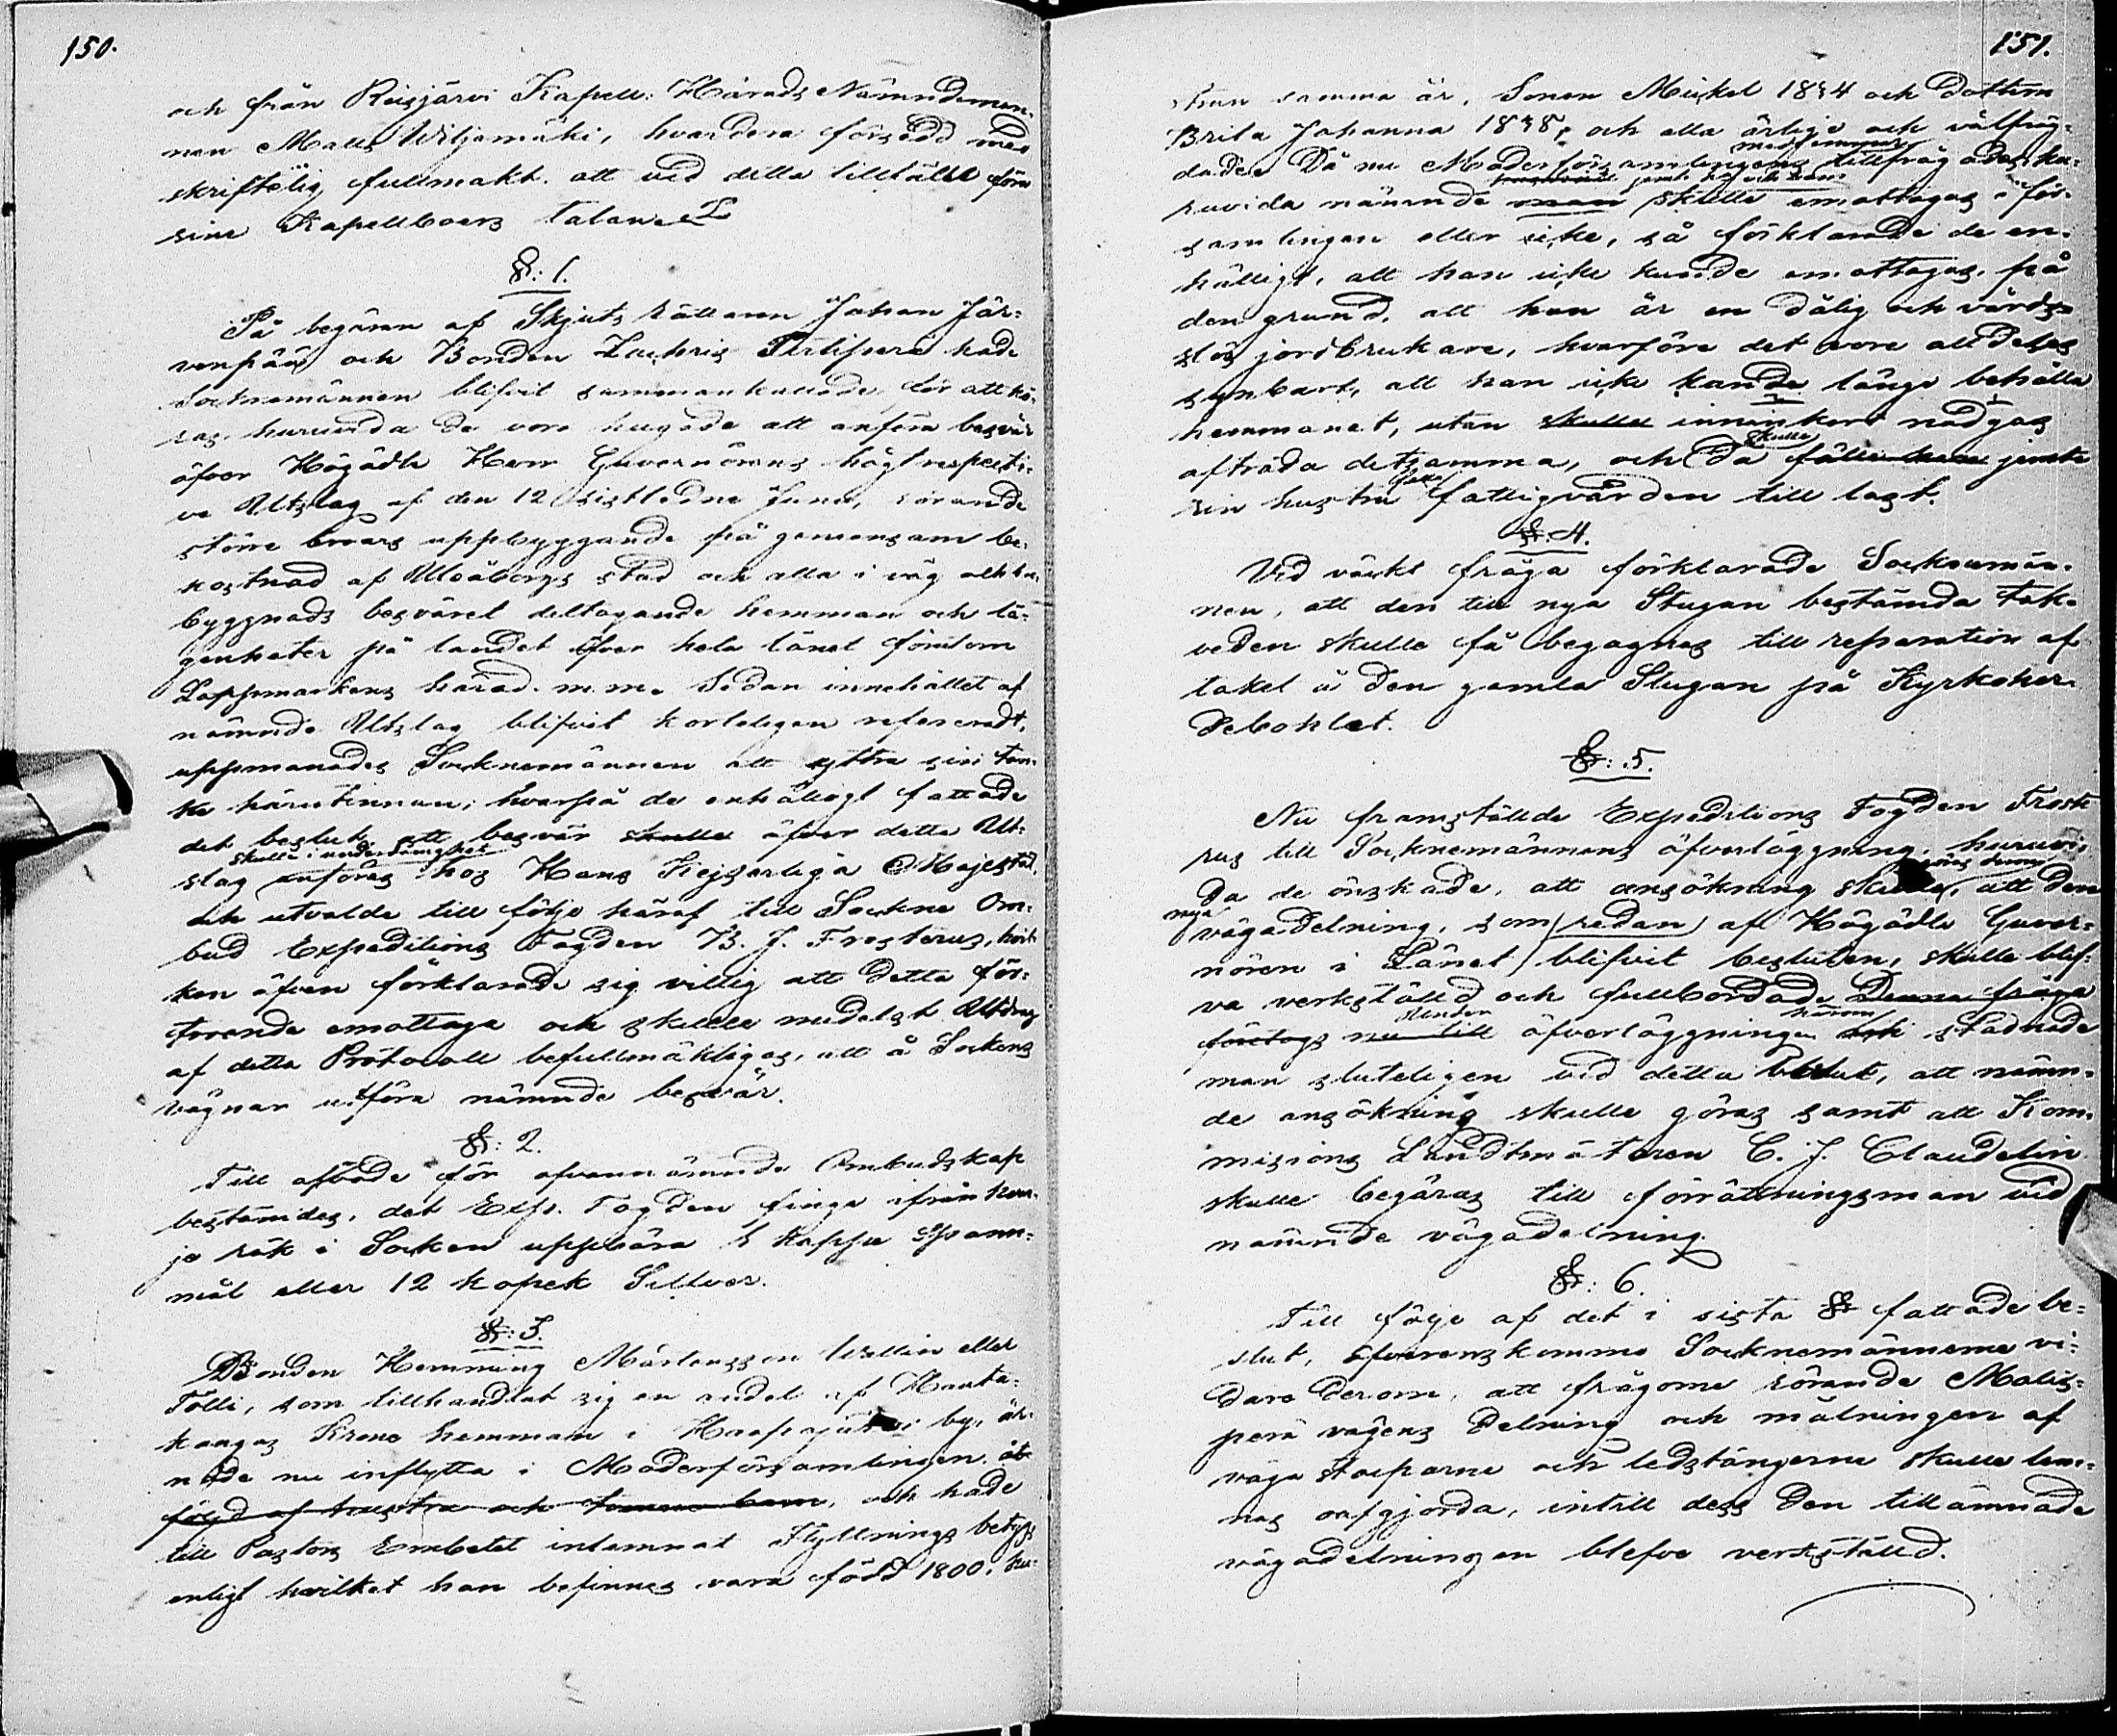 150.
och från Reisjärvi Kapell: Härads Nämndeman-
nen Matts Wiljamäki, hvardera försedd med
skriftelig fullmakt att vid detta tillfälle föra
sine Kapellboers talan.
§: 1.
På begäran af Skjuts rättaren Johan Jär-
venpää och Bonden Zachris Pirtiperä hade
Socknemännen blifvit sammankallade för att hö-
ras huruvida de voro hugade att anföra besvär
öfver Högädle Herr Guvernörens högtrespecti-
ve Utslag af den 12 sistledne Juni, rörande
större broars uppbyggande på gemensam be-
kostnad af Uleåborgs stad och alla i väg och bro
byggnads besväret deltagande hemman och lä-
genheter på landet öfver hela länet förutom
Lappmarkens härad. m. m. Sedan innehållet af
nämnde Utslag blifvit korteligen refereradt,
uppmanades Socknemännen att yttra sin tan-
ke härutinnan; hvarpå de enhälligt fattade
det beslut, att besvär skulle öfver detta Ut-
skulle i underdånighet
slag anföras hos Hans Kejserliga Majestät,
och utvalde till följe häraf till Sockne Om-
bud Expeditions Fogden B. J. Frosterus, hvil-
ken äfven förklarade sig villig att detta för-
troende emottaga och skulle medelst Utdrag
af detta Protocoll befullmäktigas, att å Sockens
vägnar utföra nämnde besvär.
§: 2.
Till arfvode för ofvannämnde Ombudskap
bestämdes, det Exp. Fogden finge ifrån hvar-
je rök i Socken uppbära ½ kappe Spann-
mål eller 12 kopek Silfver.
§: 3.
Bonden Hemming Mårtensson Wallin eller
Tölli, som tillhandlat sig en andel af Hauta-
kangas Krono hemman i Haapajärvi by, är-
nade nu inflytta i Moderförsamlingen åt-
följd af hustru och barn, och hade
till Pastors Embetet inlemnat Flyttnings betyg,
enligt hvilket han befinnes vara född 1800. hu-
151.
strun samma år. Sonen Mickel 1834 och dottren
Brita Johanna 1838, och alla ärlige och välfräj-
dade. Då nu Moderförsamlingens medlemmar tillfrågades hu-
ruvida nämnde man jemte skulle emottagas i för-
samlingen eller icke, så förklarade de en-
hälligt, att han icke kunde emottagas, på
den grund, att han är en dålig och vårds-
lös jordbrukare, hvarföre det vore alldeles
synbart, att han icke kunde länge behålla
hemmanet, utan skulle inninkort nödgas
afträda detsamma, och då skulle falla han jemte
sin hustru falla fattigvården till last.
§: 4.
Vid väckt fråga förklarade Socknemän-
nen, att den till nya Stugan bestämda tak-
veden skulle få begagnas till reparation af
taket å den gamla Stugan på Kyrkoher-
debohlet.
§: 5.
Nu framställde Expeditions Fogden Froste-
rus till Socknemännens öfverläggning, huruvi-
da de önskade, att ansökning skulle göras derom, att den
nya vägadelning, som redan af Högädle Guver-
nören i Länet blifvit besluten, skulle blif-
va verkställd och fullbordad. Denna fråga
företogs nu till öfverläggningen härom och stadnade
man sluteligen vid detta beslut, att nämn-
de ansökning skulle göras samt att Kom-
missions Landtmätaren C. J. Claudelin
skulle begäras till förrättningsman vid
nämnde vägadelning.
§: 6.
Till följe af det i sista § fattade be-
slut, öfverenskommo Socknemännerne vi-
dare derom, att frågorne rörande Malis-
perä vägens delning och målningen af
väga stolparne och ledstängerne skulle lem-
nas oafgjorda, intill dess den tillämnade
vägadelningen blefve verkställd.